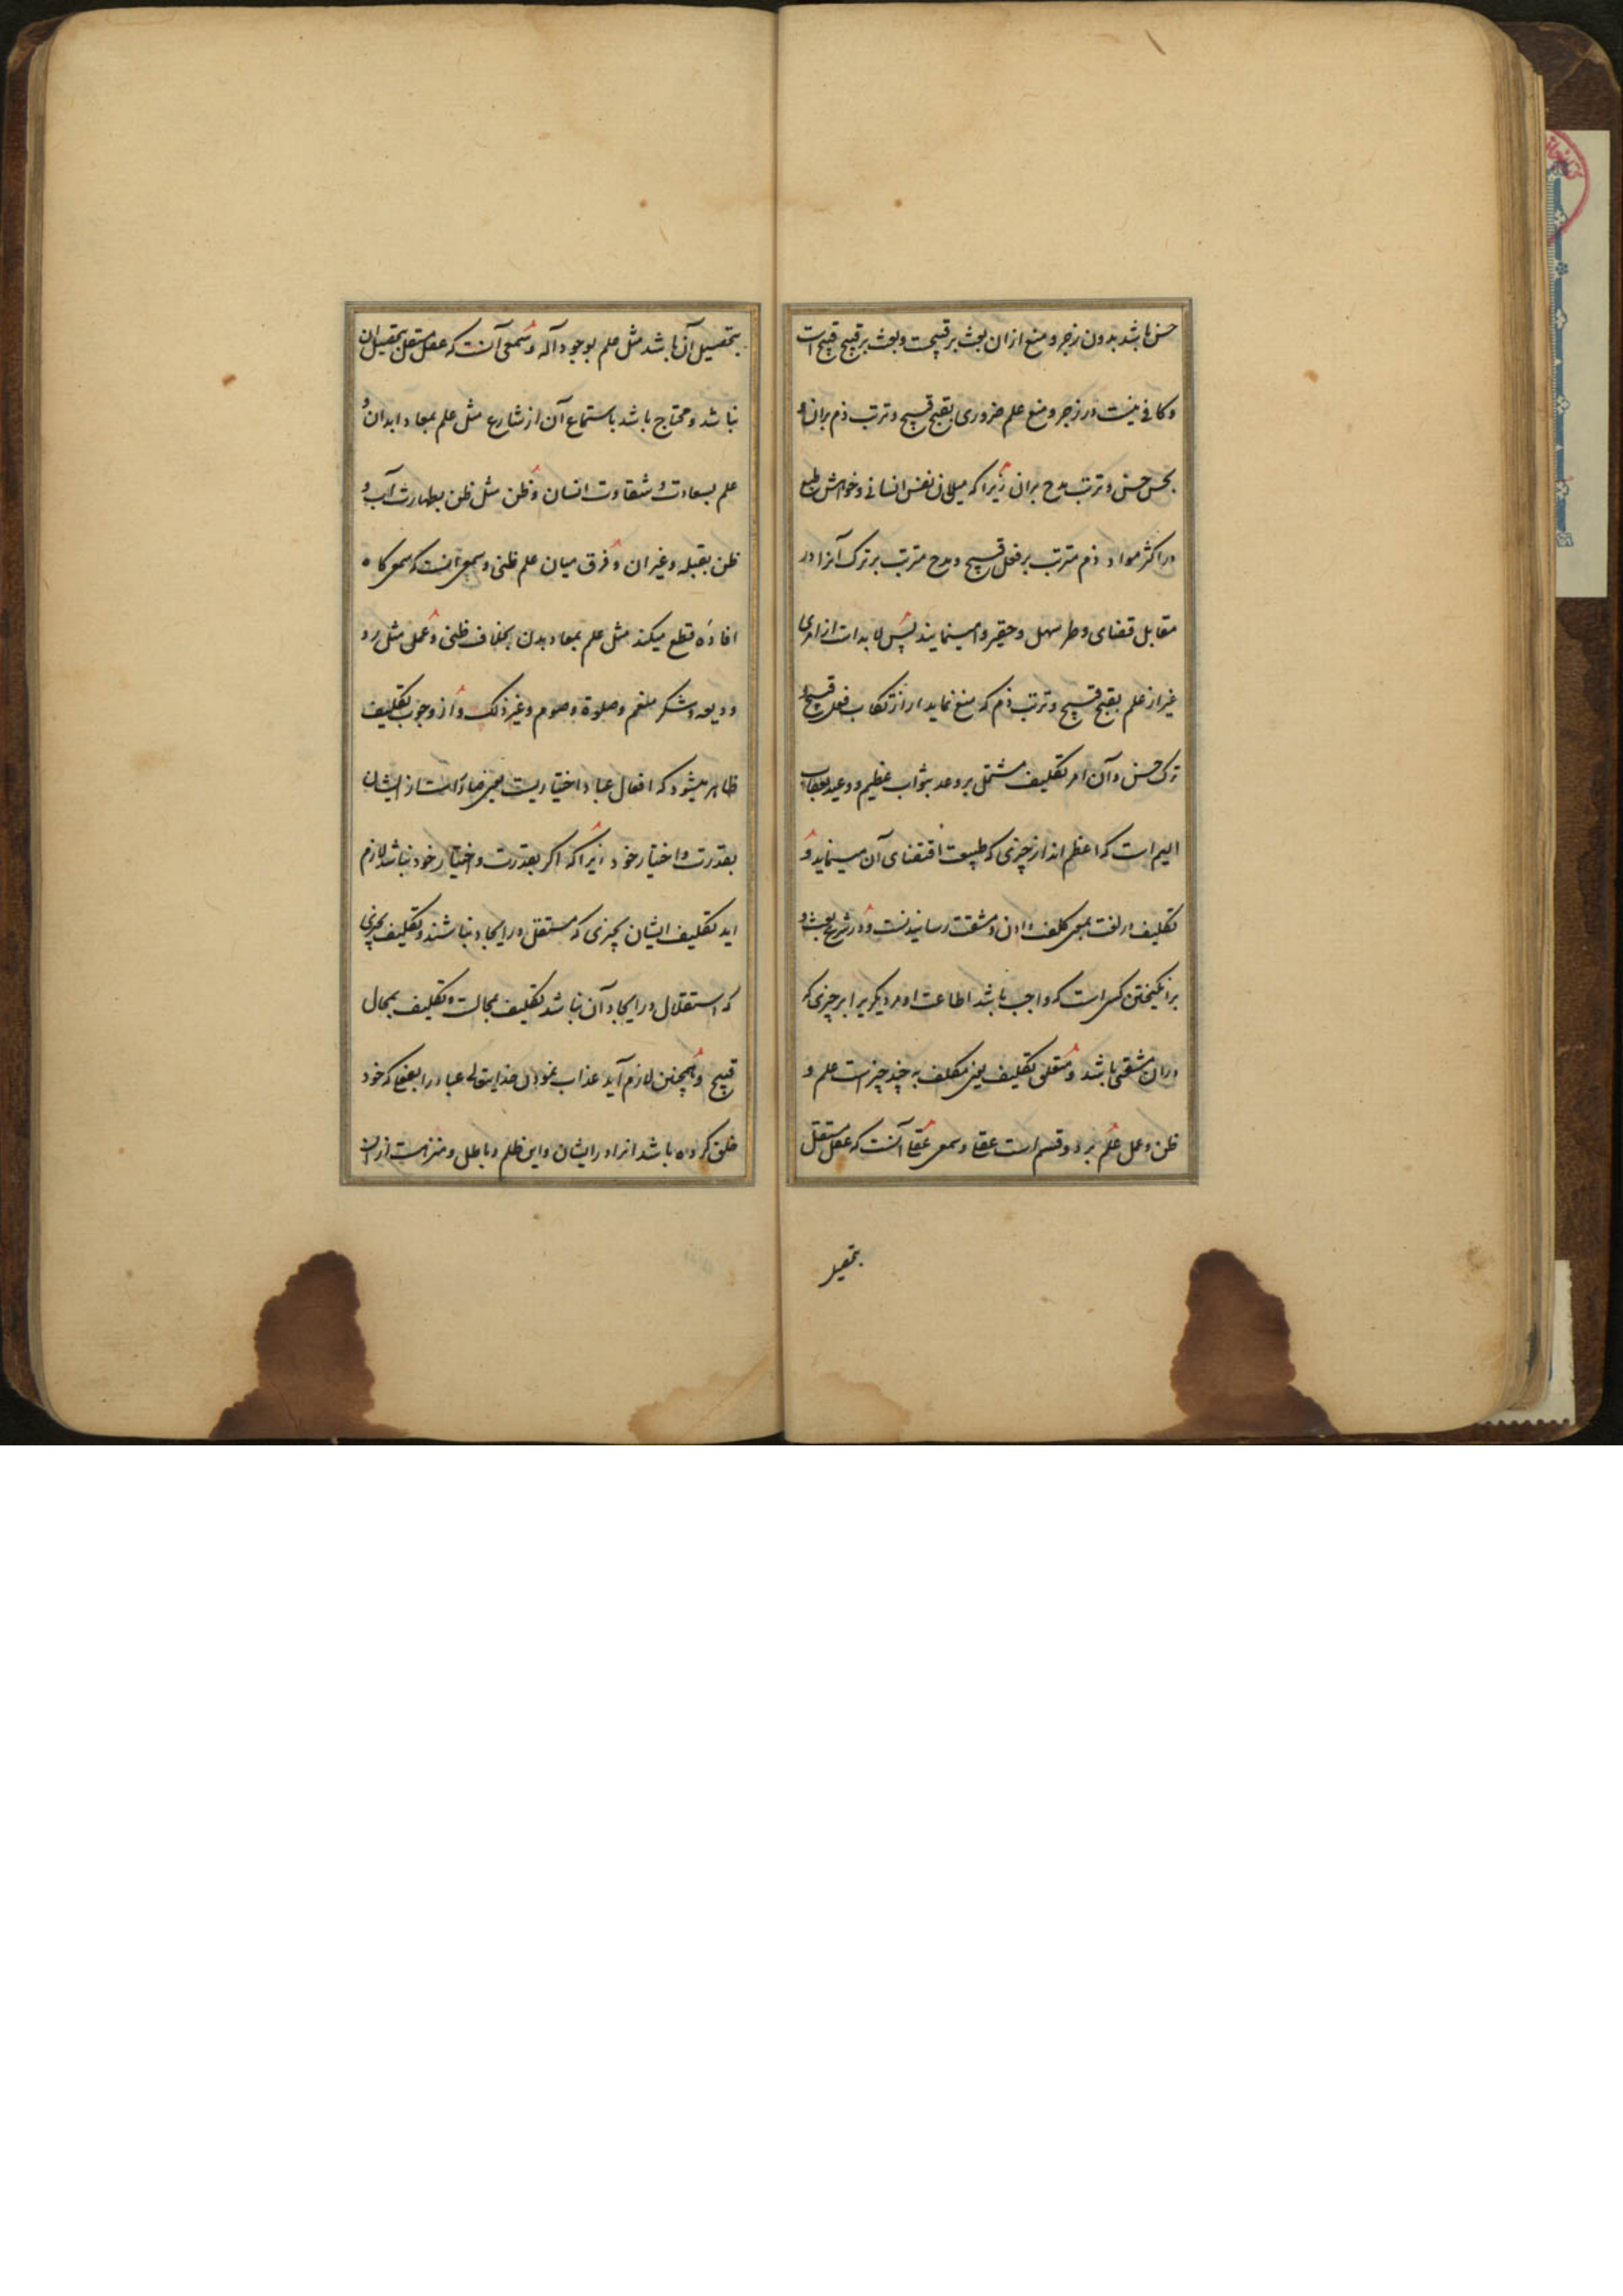 حسن باشد بدون زجر و منع ازان بعث بر قبیحست و بعث بر قبیح قبیح است
و کافی نیست در زجر و منع علم ضروری بقبح قبیح و ترتب ذم بران و
بحسن حسن و ترتب مدح بران زیرا که میلان نفس انسانی و خواهش طبع
در اکثر مواد ذم مترتب بر فعل قبیح و مدح مترتب بر ترک آنرا در
مقابل قضای وطر سهل و حقیر وا مینمایند پس لا بد است از امری
غیر از علم بقبح قبیح و ترتب ذم که منع نماید از ارتکاب فعل قبیح و
ترک حسن و آن امر تکلیف مشتمل بر وعد بثواب عظیم و وعید بعقاب
الیم است که اعظم اند از چیزی که طبیعت اقتضای آن مینماید و
تکلیف در لغت بمعنی کلفت دادن و مشقت رسانیدنست و در شرع بعث و
برانگیختن کسی است که واجب باشد اطاعت او مر دیگریرا بر چیزی که
دران مشقتی باشد و متعلق تکلیف یعنی مکلف به چند چیز است علم و
ظن و عمل علم بر دو قسم است عقلی و سمعی عقلی آنست که عقل مستقل
بتحصیل
بتحصیل آن باشد مثل علم بوجود آله و سمعی آنست که عقل مستقل بتحصیل ان
نباشد و محتاج باشد باستماع آن از شارع مثل علم بمعاد ابدان و
علم بسعادت و شقاوت انسان و ظن مثل ظن بطهارت آب و
ظن بقبله و غیر ان و فرق میان علم ظنی و سمعی انست که سمعی کاه
افاده قطع میکند مثل علم بمعاد بدن بخلاف ظنی و عمل مثل رد
ودیعه و شکر منعم و صلوة و صوم و غیر ذلک و از وجوب تکلیف
ظاهر میشود که افعال عباد اختیاریست یعنی صادر است از ایشان
بقدرت و اختیار خود زیرا که اکر بقدرت و اختیار خود نباشد لازم
اید تکلیف ایشان بچیزی که مستقل در ایجاد نباشند و تکلیف بچیزی
که استقلال در ایجاد آن نباشد تکلیف بمحالست و تکلیف بمحال
قبیح و همچنین لازم آید عذاب نمودن خدایتعالی عباد را بفعلی که خود
خلق کرده باشد انرا در ایشان و این ظلم و باطل و منزه است از ان